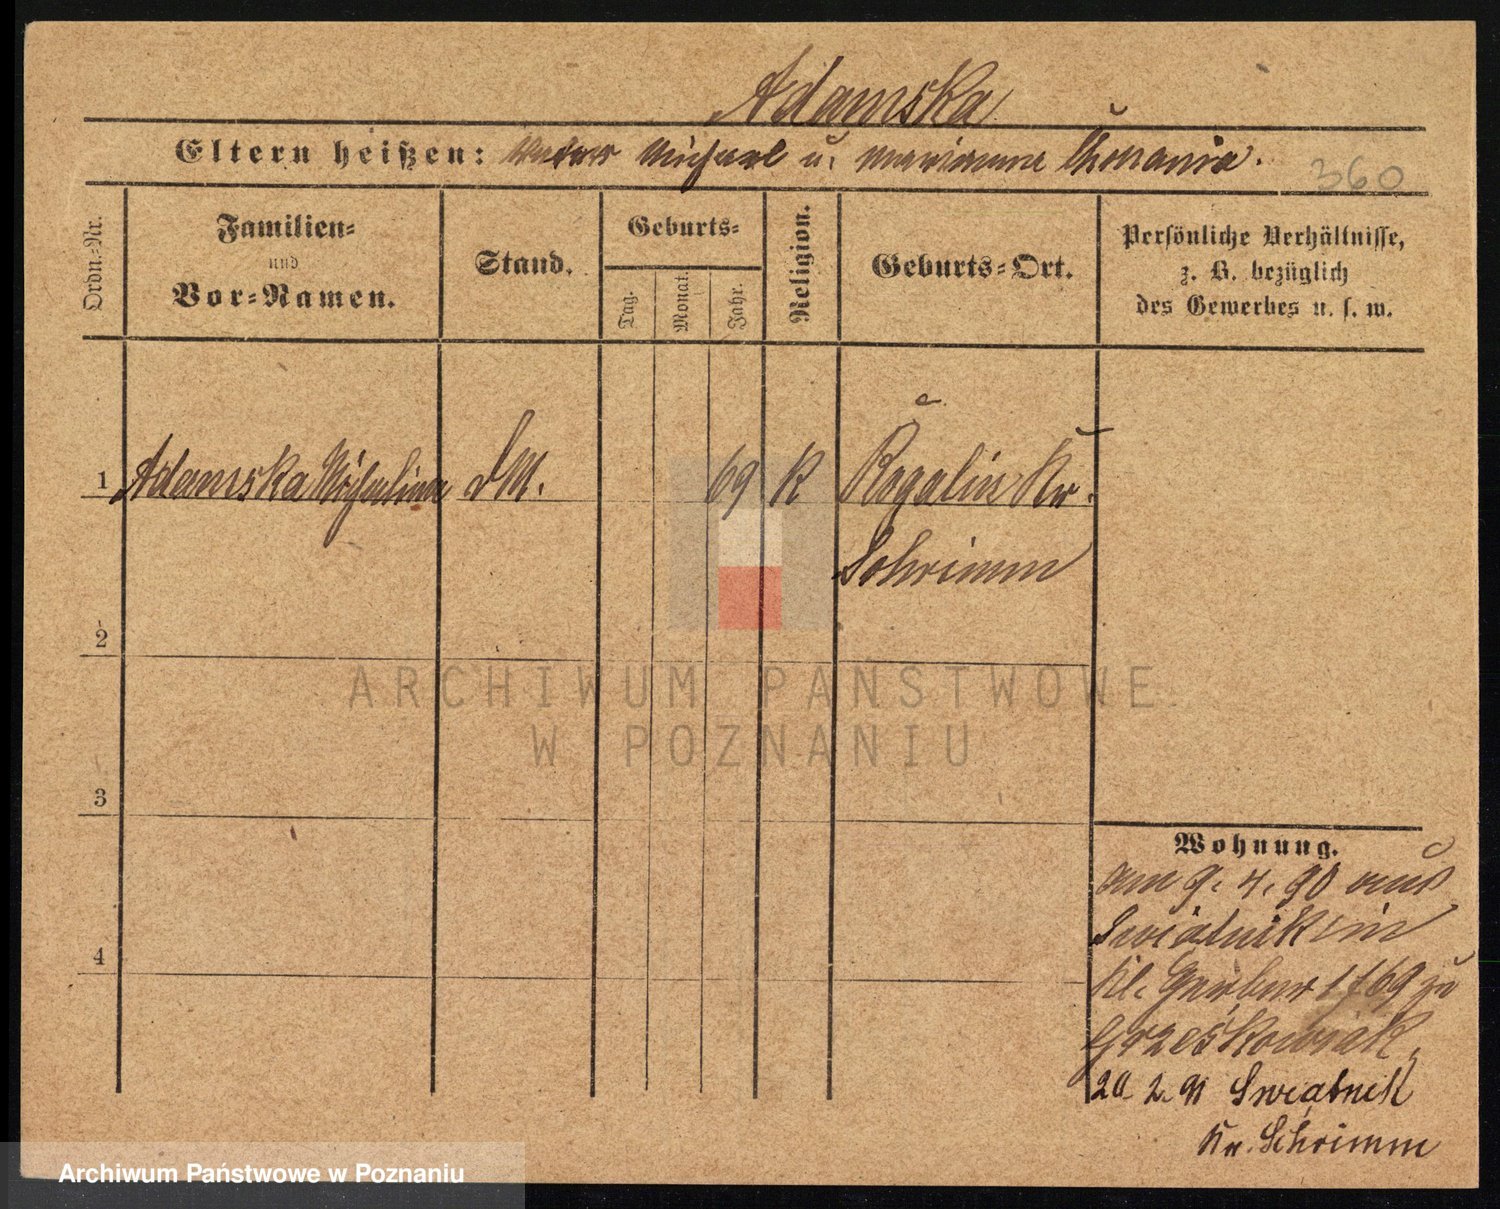 Adamska
Eltern heißen: Vater Michael u. Marianna
360
Ordn.-Nr.
Familien-
und
Vor-Namen.
Stand.
Geburts-
Tag.
Monat.
Jahr.
Religion.
Geburts-Ort.
Persönliche Verhältnisse,
z. B. bezüglich
des Gewerbes u. s. w.
1 Adamska Michalina DM. 69 K Rogalin Kr.
Schrimm
2
3
4
Wohnung.
am 9. 4. 90 aus
Swiątnik in
Kl. Gerber 1169 zu
Grześkowiak
20. 2. 91 Swiątnik
Kr. Schrimm
ARCHIWUM PAŃSTWOWE
W POZNANIU
Archiwum Państwowe w Poznaniu